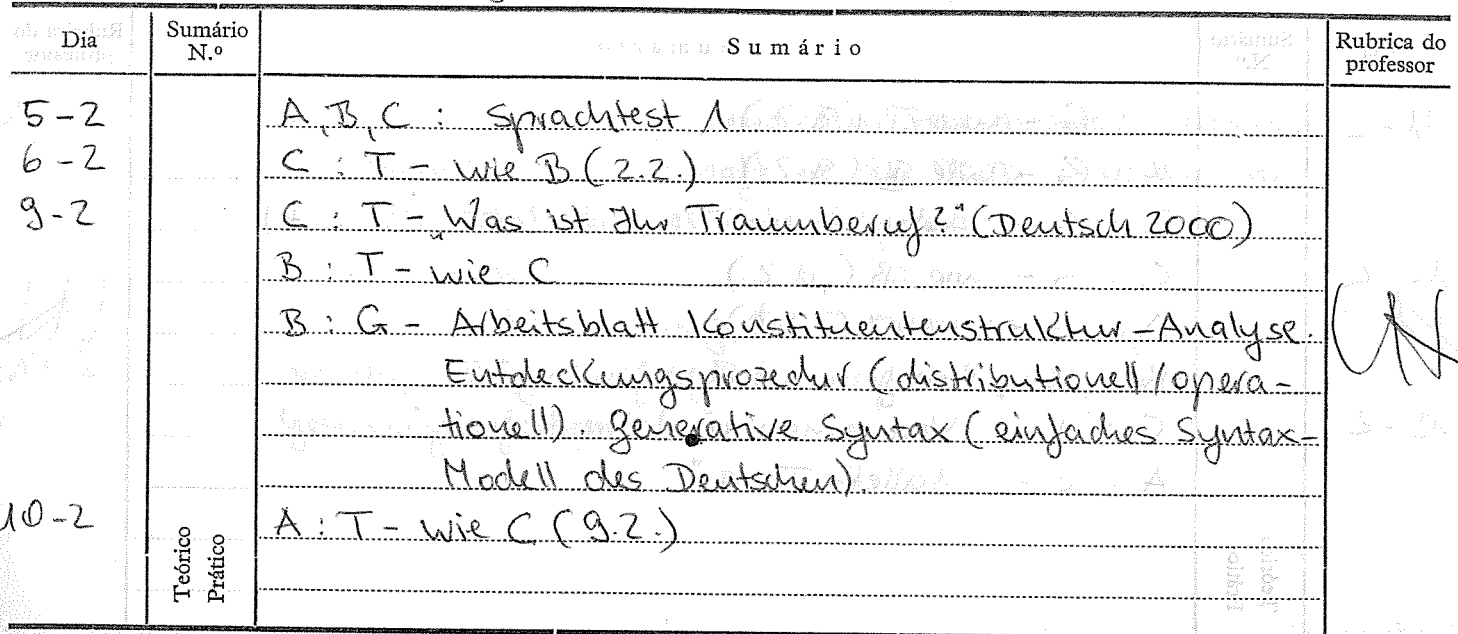 Dia Sumário N.º Sumário Rubrica do professor
5-2 A, B, C : Sprachtest 1
6-2 C : T - wie B (2.2.)
9-2 C : T - „Was ist Ihr Traumberuf?" (Deutsch 2000)
B : T - wie C
B : G - Arbeitsblatt Konstituentenstruktur-Analyse.
Entdeckungsprozedur (distributionell/opera-
tionell). Generative Syntax (einfaches Syntax-
Modell des Deutschen).
10-2 A : T - wie C (9.2.)
Teórico
Prático